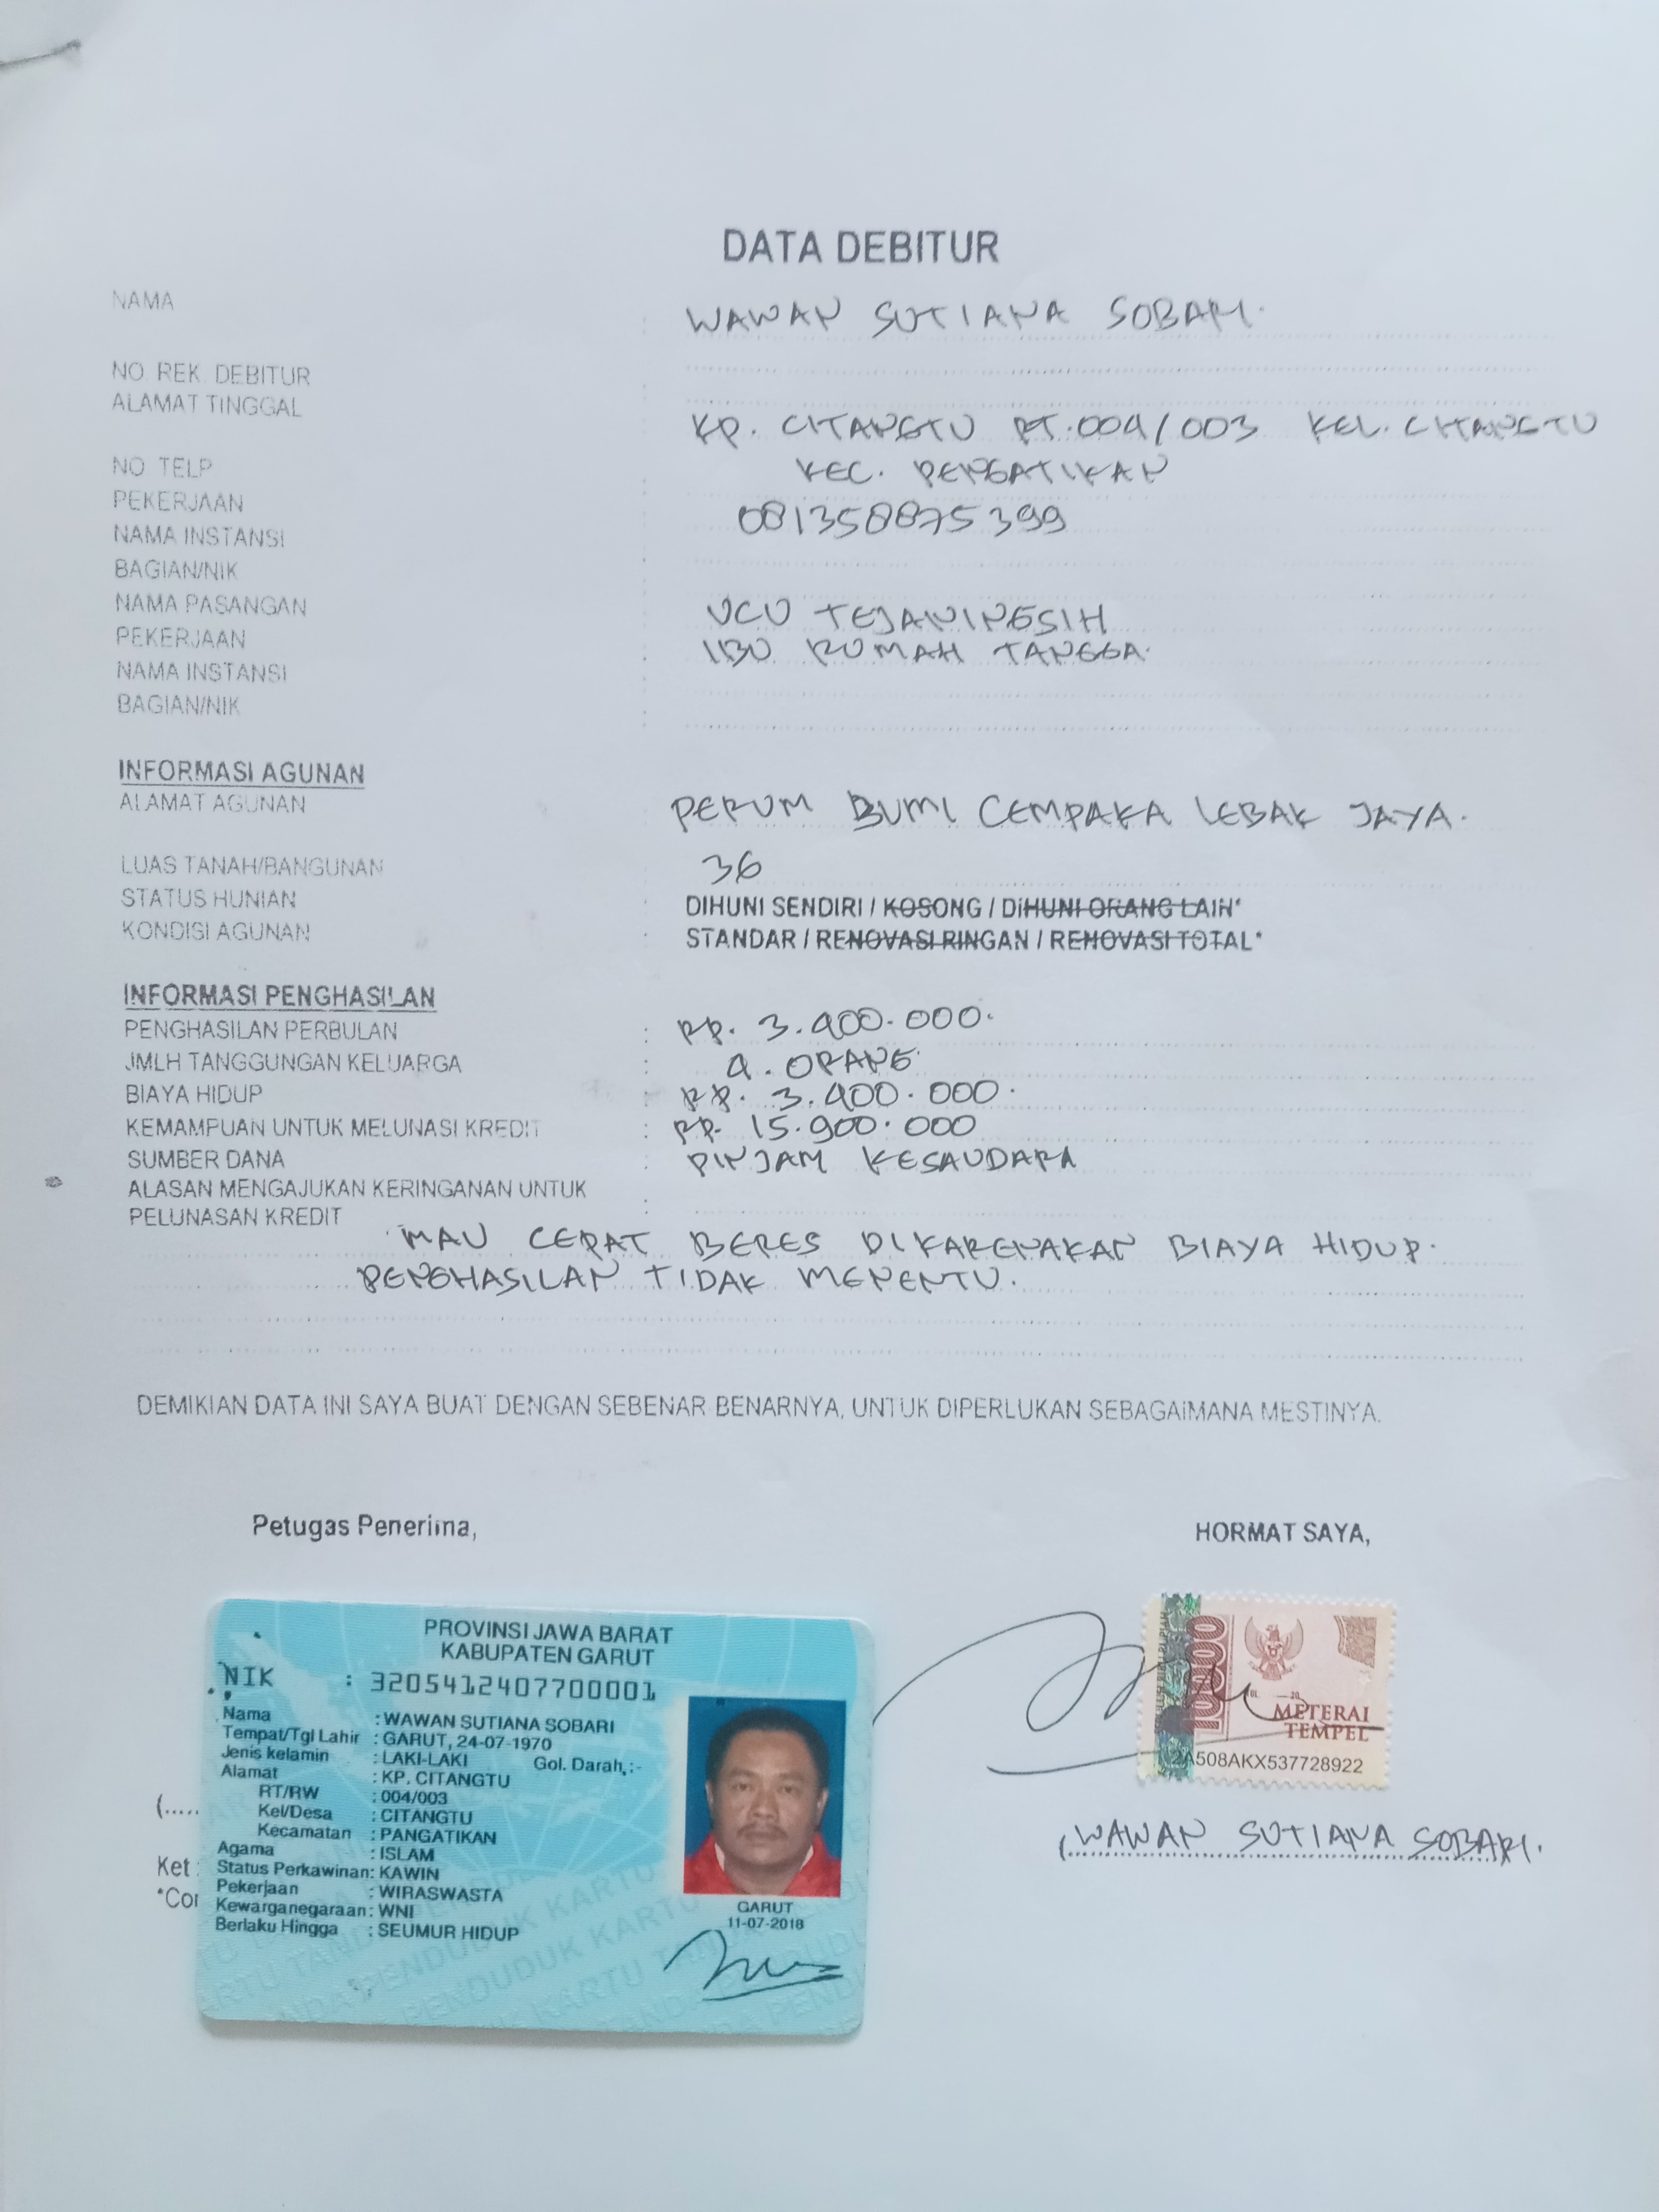 DATA DEBITUR
NAMA : WAWAN SUTIANA SOBARI.
NO. REK. DEBITUR
ALAMAT TINGGAL : KP. CITANGTU RT.004/003 KEL. CITANGTU
KEC. PENGATIKAN
NO TELP
PEKERJAAN 081358875399
NAMA INSTANSI
BAGIAN/NIK
NAMA PASANGAN : UCU TEJANINGSIH
PEKERJAAN : IBU RUMAH TANGGA.
NAMA INSTANSI :
BAGIAN/NIK :
INFORMASI AGUNAN
ALAMAT AGUNAN : PERUM BUMI CEMPAKA LEBAK JAYA.
LUAS TANAH/BANGUNAN 36
STATUS HUNIAN : DIHUNI SENDIRI / KOSONG / DIHUNI ORANG LAIN*
KONDISI AGUNAN : STANDAR / RENOVASI RINGAN / RENOVASI TOTAL*
INFORMASI PENGHASILAN
PENGHASILAN PERBULAN : RP. 3.400.000.
JMLH TANGGUNGAN KELUARGA : 4. ORANG
BIAYA HIDUP : RP. 3.400.000.
KEMAMPUAN UNTUK MELUNASI KREDIT : RP. 15.900.000
SUMBER DANA : PINJAM KESAUDARA
ALASAN MENGAJUKAN KERINGANAN UNTUK :
PELUNASAN KREDIT
MAU CEPAT BERES DIKARENAKAN BIAYA HIDUP.
PENGHASILAN TIDAK MENENTU.
DEMIKIAN DATA INI SAYA BUAT DENGAN SEBENAR BENARNYA, UNTUK DIPERLUKAN SEBAGAIMANA MESTINYA.
Petugas Penerima, HORMAT SAYA,
PROVINSI JAWA BARAT
KABUPATEN GARUT
NIK : 3205412407700001
Nama : WAWAN SUTIANA SOBARI
Tempat/Tgl Lahir : GARUT, 24-07-1970
Jenis kelamin : LAKI-LAKI Gol. Darah : -
Alamat : KP. CITANGTU
RT/RW : 004/003
Kel/Desa : CITANGTU
Kecamatan : PANGATIKAN
Agama : ISLAM
Status Perkawinan: KAWIN
Pekerjaan : WIRASWASTA
Kewarganegaraan: WNI
Berlaku Hingga : SEUMUR HIDUP
GARUT
11-07-2018
10000
METERAI
TEMPEL
2A508AKX537728922
(WAWAN SUTIANA SOBARI.
(.....
Ket :